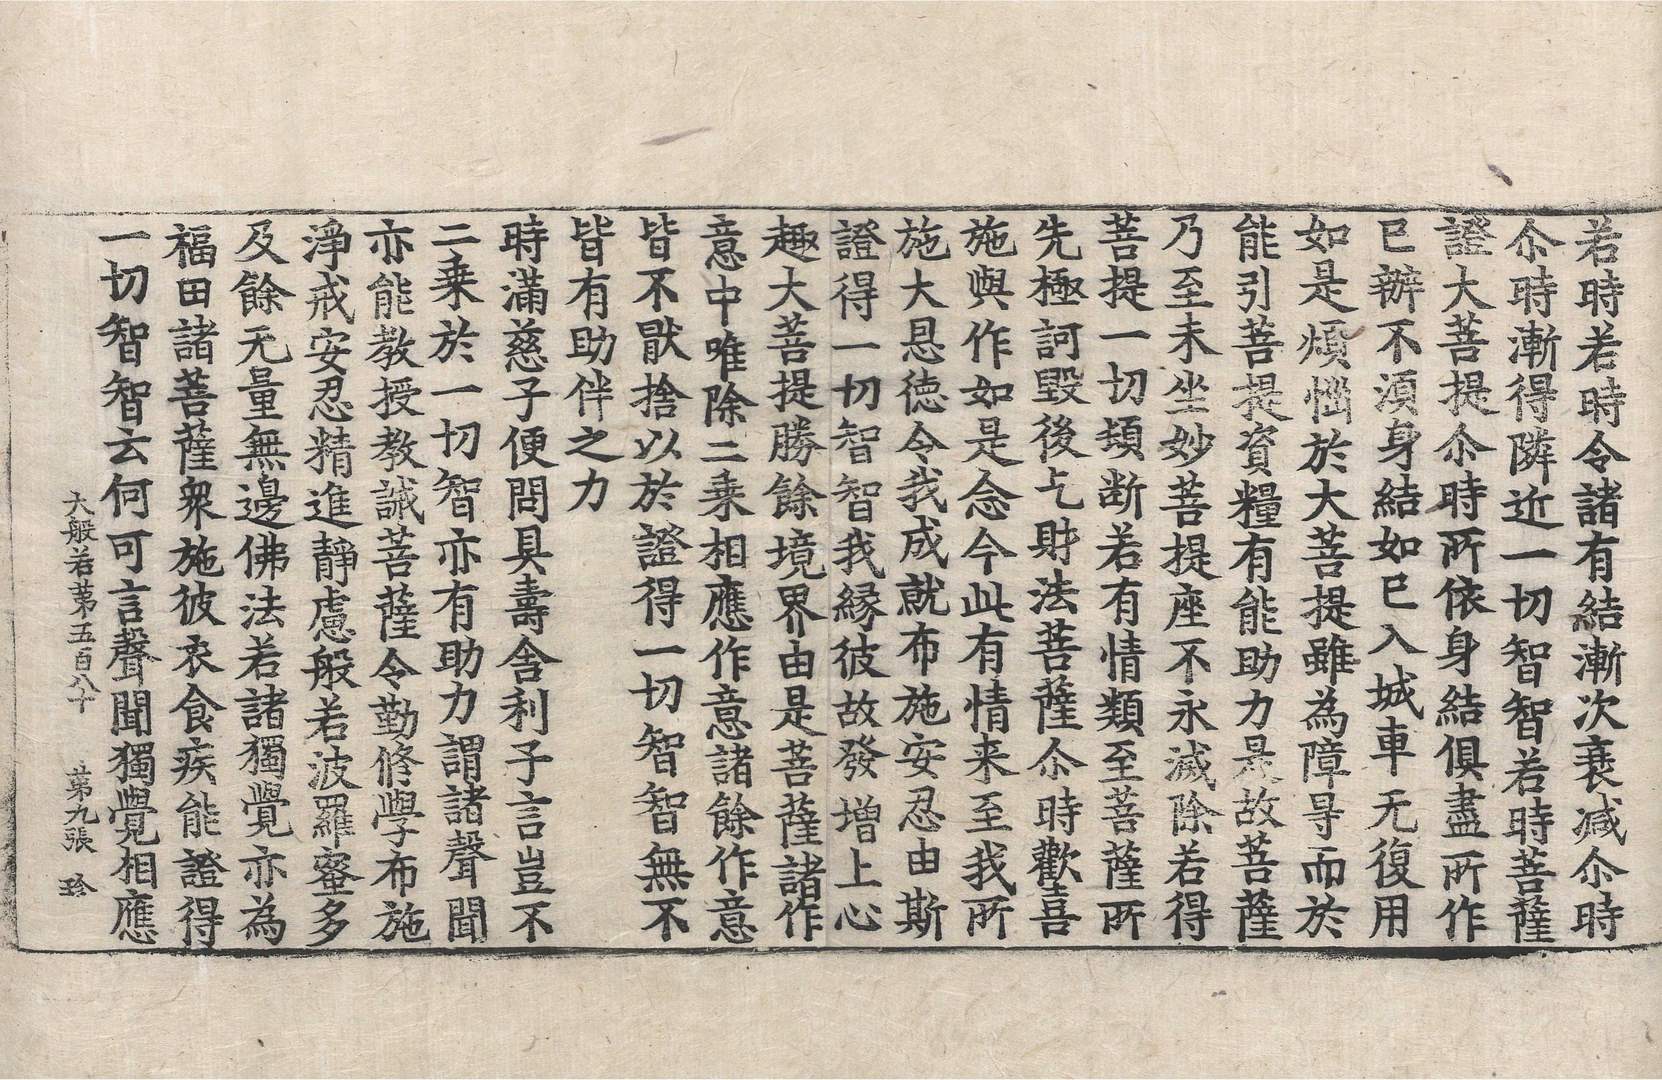 若時若時令諸有結漸次衰减尒時
尒時漸得隣近一切智智若時菩薩
證大菩提尒時所依身結俱盡所作
已辦不湏身結如已入城車无復用
如是煩惱於大菩提雖為障㝵而於
能引菩提資糧有能助力是故菩薩
乃至未坐妙菩提座不永滅除若得
菩提一切頓断若有情類至菩薩所
先極訶毀後乞財法菩薩尒時歡喜
施與作如是念今此有情来至我所
施大恩德令我成就布施安忍由斯
證得一切智智我縁彼故發增上心
趣大菩提勝餘境界由是菩薩諸作
意中唯除二乗相應作意諸餘作意
皆不猒捨以於證得一切智智無不
皆有助伴之力
時滿慈子便問具壽舍利子言豈不
二乗於一切智亦有助力謂諸聲聞
亦能教授教誡菩薩令勤修學布施
淨戒安忍精進靜慮般若波羅蜜多
及餘无量無邊佛法若諸獨覺亦為
福田諸菩薩衆施彼衣食疾能證得
一切智智云何可言聲聞獨覺相應
大般若苐五百八十　苐九張　珍